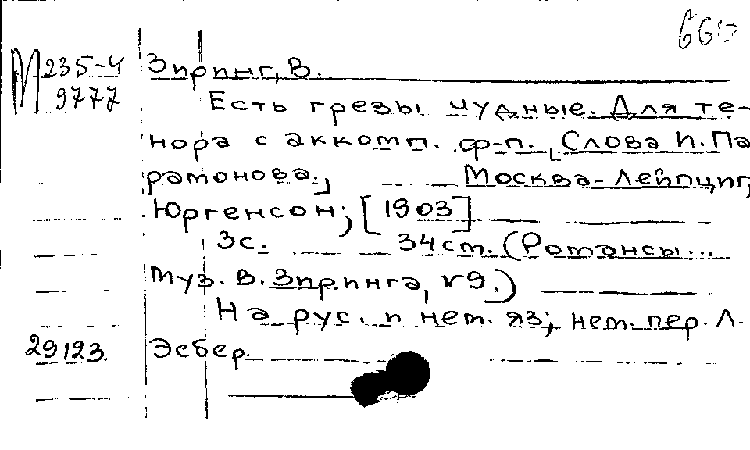 660
М 235-4 Зиринг, В.
9777 Есть грезы чудные. Для те-
нора с аккомп. ф-п. Слова И. Па
ратонова., Москва-Лейпциг,
Юргенсон; [1903]
3с. 34см. (Романсы...
Муз. В. Зиринга, №9.)
На рус. и нем. яз; нем. пер. Л.
29123 Эсбер